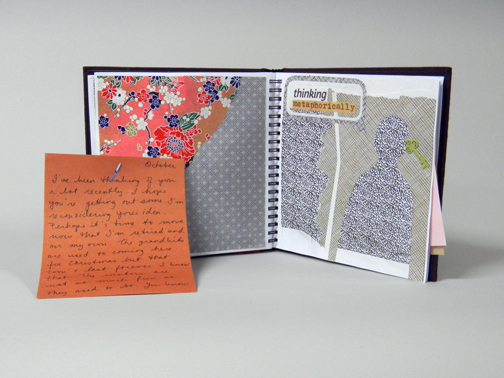 October
I've been thinking of you
a lot recently. I hope
you're getting out some. I'm
reconsidering your idea.
Perhaps it's time to move
now that I'm retired and
on my own. The grandkids
are used to coming here
for Christmas but that
won't last forever. I know
not as much fun as
they used to be. You know
thinking
metaphorically